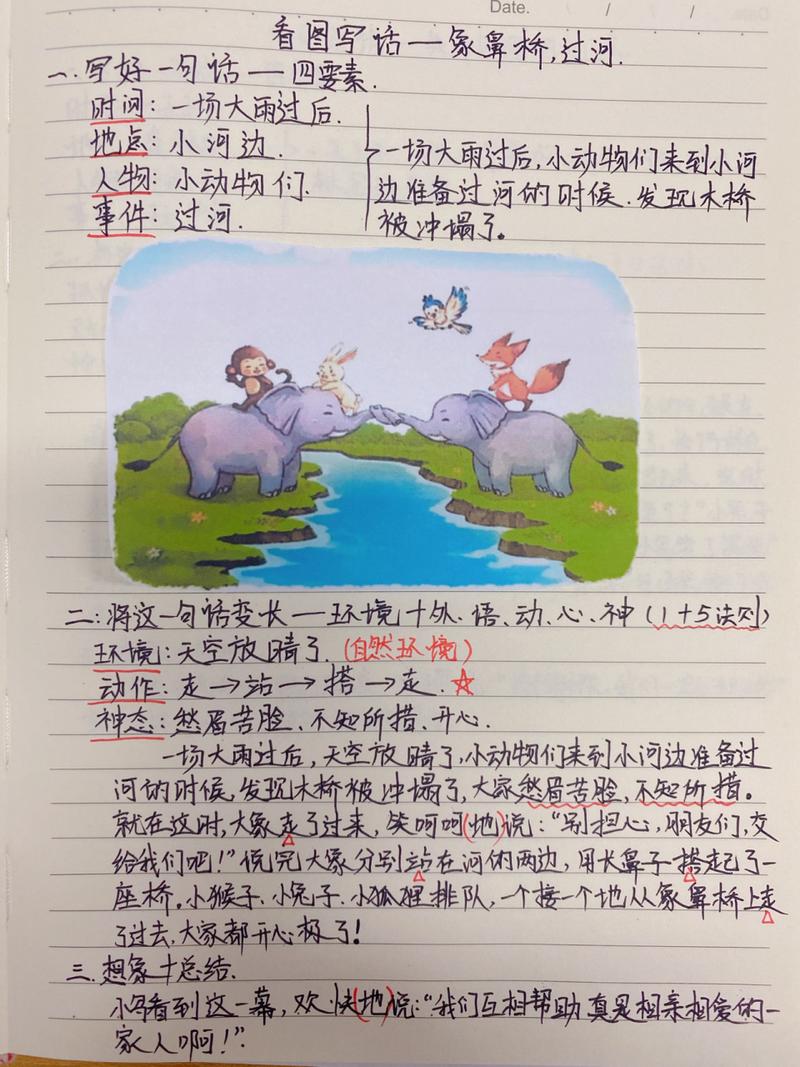 Date. / /
看图写话—象鼻桥,过河.
一.写好一句话—四要素.
时间:一场大雨过后.
地点:小河边.
人物:小动物们.
事件:过河.
一场大雨过后,小动物们来到小河
边准备过河的时候.发现木桥
被冲塌了。
二:将这一句话变长—环境+外、语、动、心、神(1+5法则)
环境:天空放晴了.(自然环境)
动作:走→站→搭→走.☆
神态:愁眉苦脸、不知所措、开心.
一场大雨过后,天空放晴了,小动物们来到小河边准备过
河的时候,发现木桥被冲塌了,大家愁眉苦脸,不知所措。
就在这时,大象走了过来,笑呵呵(地)说:“别担心,朋友们,交
给我们吧!”说完大象分别站在河的两边,用长鼻子搭起了一
座桥。小猴子、小兔子、小狐狸排队,一个接一个地从象鼻桥上走
了过去,大家都开心极了!
三.想象+总结.
小鸟看到这一幕,欢快(地)说:“我们互相帮助真是相亲相爱的一
家人啊!”.